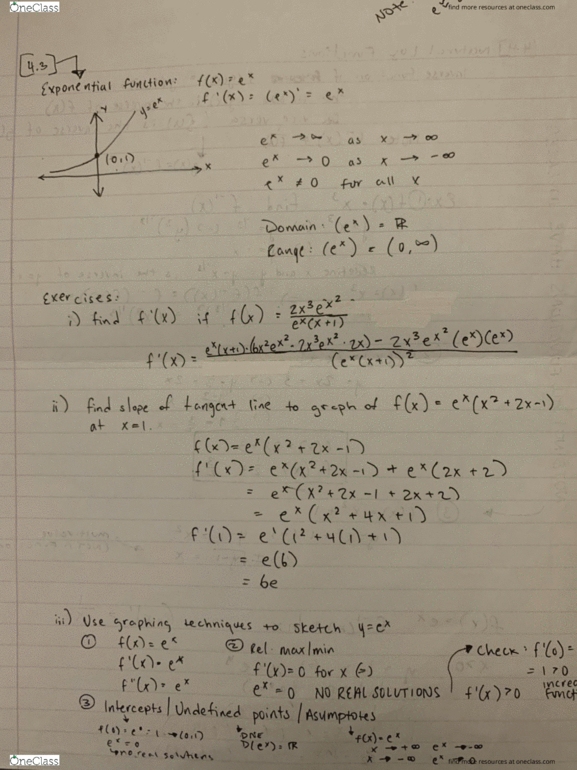 OneClass
find more resources at oneclass.com
NOTE
4.3
Exponential function: f(x) = e^x
f'(x) = (e^x)' = e^x
y
y=e^x
(0,1)
x
e^x → ∞ as x → ∞
e^x → 0 as x → -∞
e^x ≠ 0 for all x
Domain: (e^x) = ℝ
Range: (e^x) = (0, ∞)
Exercises:
i) find f'(x) if f(x) = 2x^3e^x^2 / e^x(x+1)
f'(x) = e^x(x+1)·(6x^2e^x^2 · 2x^3e^x^2 · 2x) - 2x^3e^x^2 (e^x)(e^x) / (e^x(x+1))^2
ii) find slope of tangent line to graph of f(x) = e^x(x^2+2x-1)
at x=1.
f(x) = e^x(x^2+2x-1)
f'(x) = e^x(x^2+2x-1) + e^x(2x+2)
= e^x(x^2+2x-1+2x+2)
= e^x(x^2+4x+1)
f'(1) = e^1(1^2+4(1)+1)
= e(6)
= 6e
iii) Use graphing techniques to sketch y=e^x
① f(x) = e^x
f'(x) = e^x
f''(x) = e^x
② Rel max/min
f'(x)=0 for x
e^x = 0 NO REAL SOLUTIONS
check: f'(0) =
= 1 > 0
f'(x) > 0
③ Intercepts / Undefined points / Asymptotes
f(0) = e^0 = 1 → (0,1)
e^x = 0
→ no real solutions
DNE
D(e^x) = ℝ
f(x) = e^x
x → +∞ e^x → ∞
x → -∞ e^x → 0
OneClass
find more resources at oneclass.com